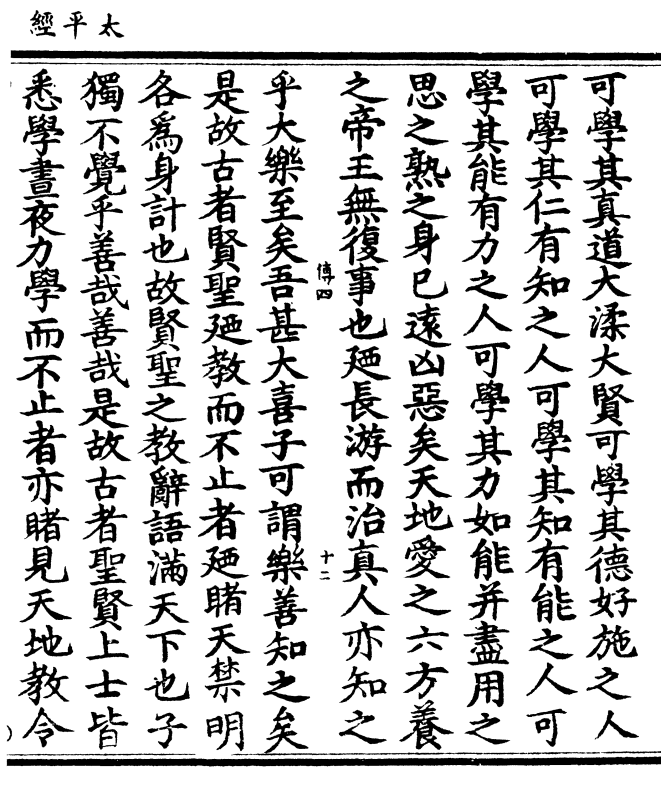 太平經
可學其真道大渘大賢可學其德好施之人
可學其仁有知之人可學其知有能之人可
學其能有力之人可學其力如能并盡用之
思之熟之身已遠凶惡矣天地愛之六方養
之帝王無復事也廼長游而治真人亦知之
傳四
十二
乎大樂至矣吾甚大喜子可謂樂善知之矣
是故古者賢聖廼教而不止者廼睹天禁明
各爲身計也故賢聖之教辭語滿天下也子
獨不覺乎善哉善哉是故古者聖賢上士皆
悉學晝夜力學而不止者亦睹見天地教令